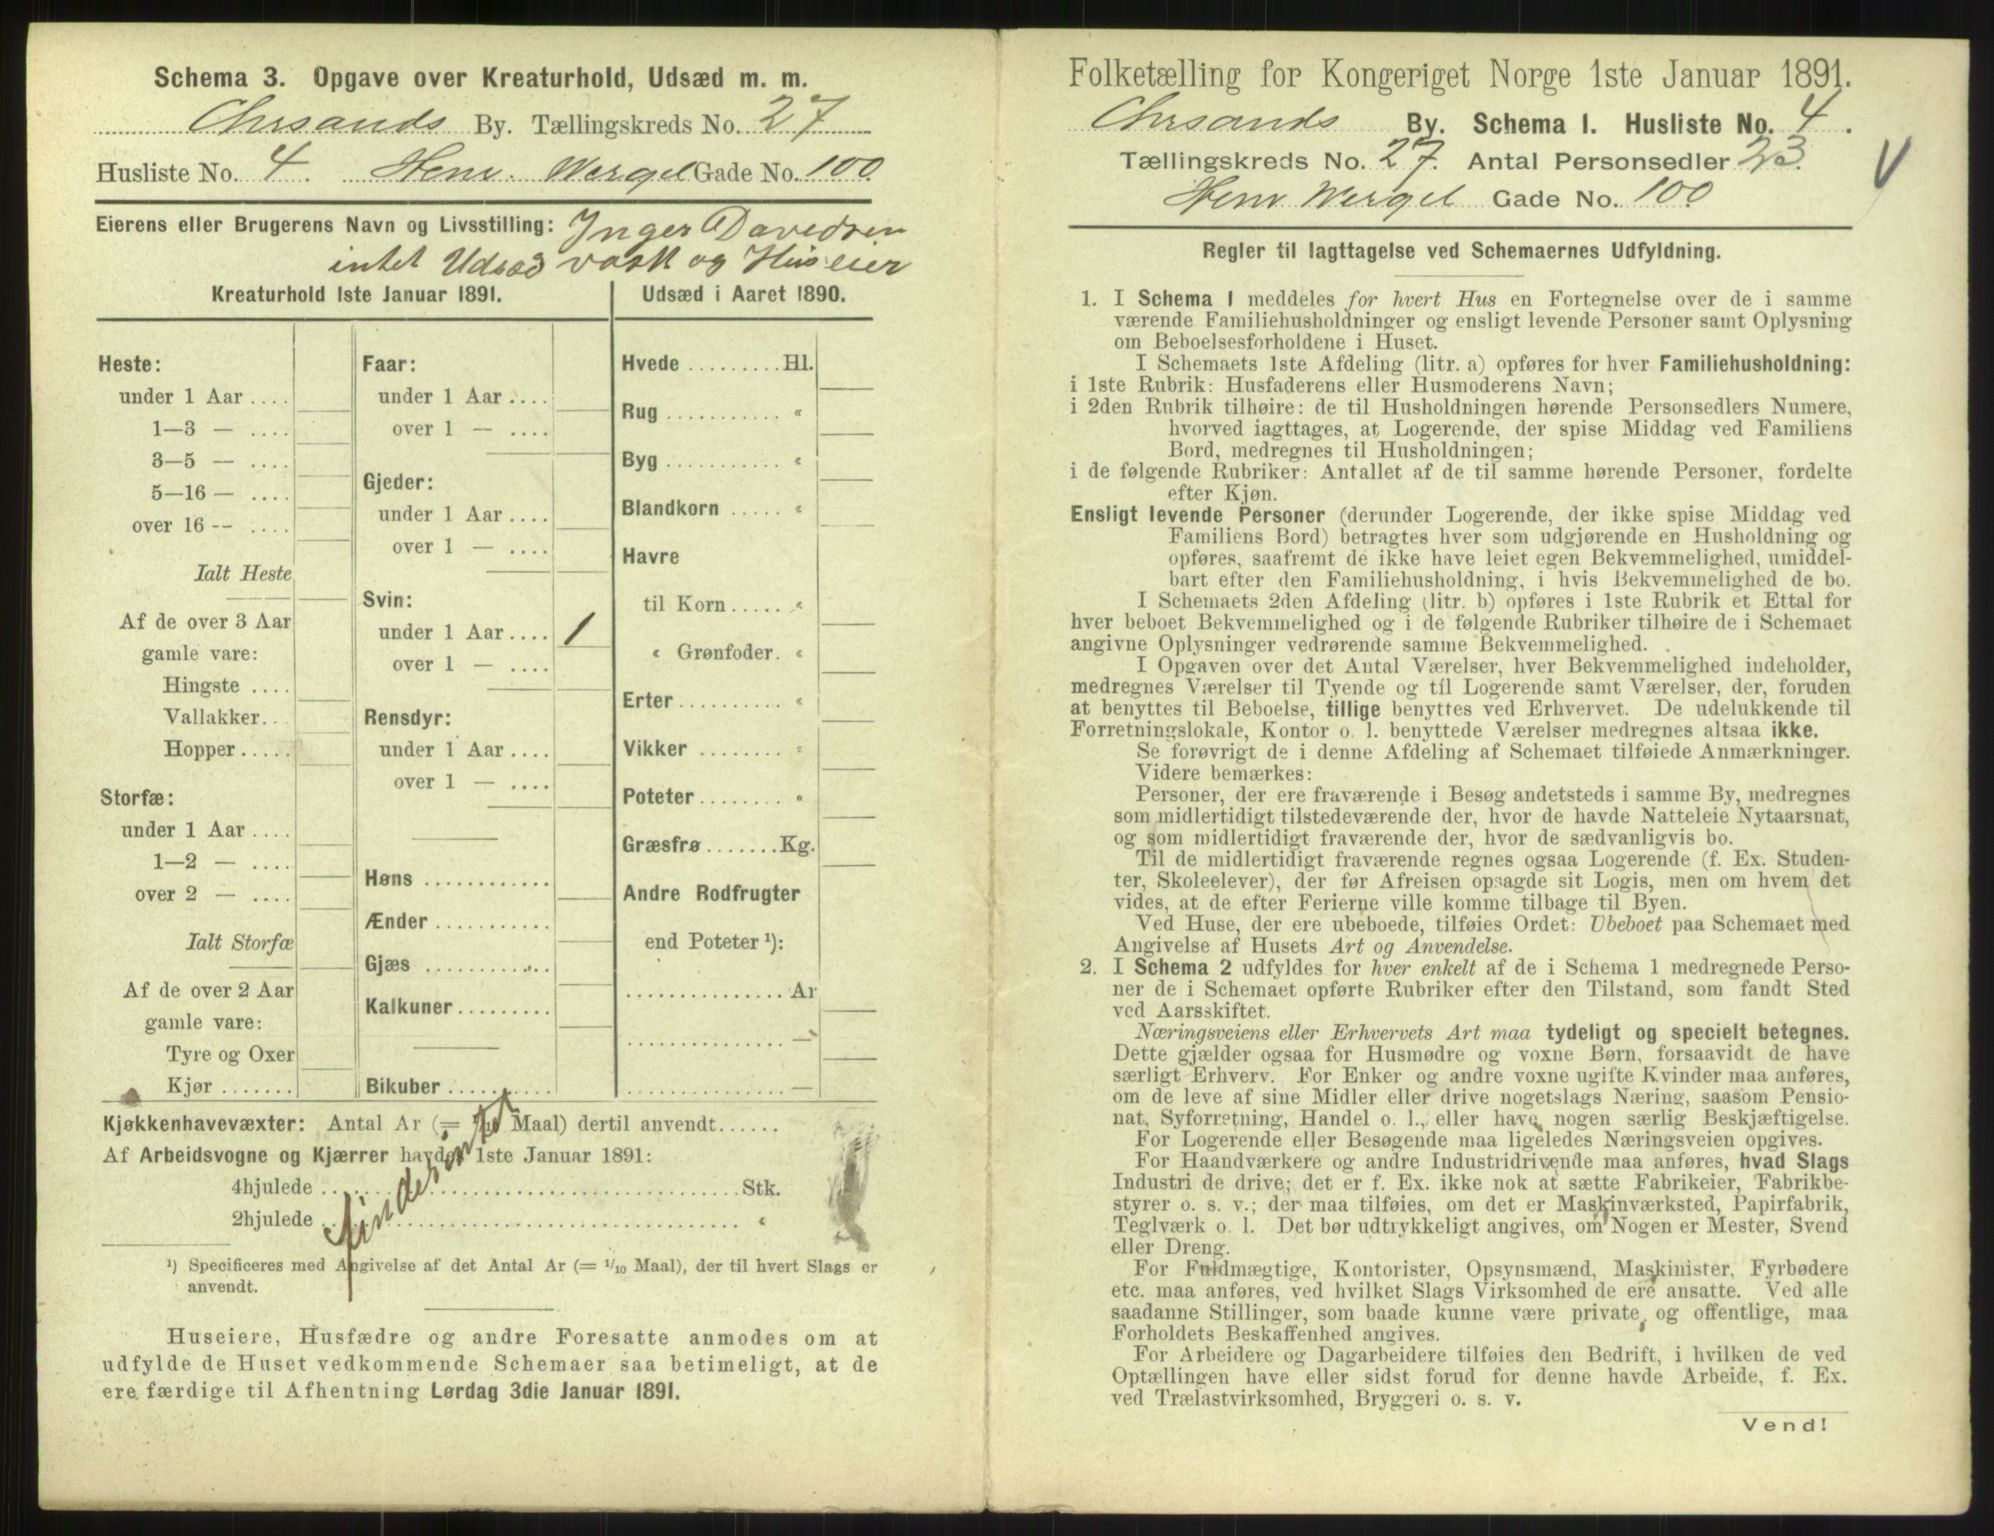 Schema 3. Opgave over Kreaturhold, Udsæd m. m.
Chrsands By. Tællingskreds No. 27
Husliste No. 4. Henr. Wergel Gade No. 100
Eierens eller Brugerens Navn og Livsstilling: Inger Davedsen
intet Udsæd vask og Huseier
Kreaturhold 1ste Januar 1891.
Heste:
under 1 Aar ....
1—3 — ....
3—5 — ....
5—16 — ....
over 16 — ....
Ialt Heste
Af de over 3 Aar
gamle vare:
Hingste ....
Vallakker..
Hopper .....
Storfæ:
under 1 Aar ....
1—2 — ....
over 2 — ....
Ialt Storfæ
Af de over 2 Aar
gamle vare:
Tyre og Oxer
Kjør .......
Faar:
under 1 Aar ....
over 1 — ....
Gjeder:
under 1 Aar ....
over 1 — ....
Svin:
under 1 Aar .... 1
over 1 — ....
Rensdyr:
under 1 Aar ....
over 1 — ....
Høns ............
Ænder ...........
Gjæs ............
Kalkuner .........
Bikuber ..........
Udsæd i Aaret 1890.
Hvede ......... Hl.
Rug ........... «
Byg ........... «
Blandkorn ..... «
Havre
til Korn ...... «
« Grønfoder. «
Erter .......... «
Vikker ......... «
Poteter ........ «
Græsfrø ....... Kg.
Andre Rodfrugter
end Poteter ¹):
............... Ar
............... —
............... —
Kjøkkenhavevæxter: Antal Ar (= 1/10 Maal) dertil anvendt......
Af Arbeidsvogne og Kjærrer havdes 1ste Januar 1891:
4hjulede ........ Stk.
2hjulede ........ «
¹) Specificeres med Angivelse af det Antal Ar (= 1/10 Maal), der til hvert Slags er
anvendt.
Huseiere, Husfædre og andre Foresatte anmodes om at
udfylde de Huset vedkommende Schemaer saa betimeligt, at de
ere færdige til Afhentning Lørdag 3die Januar 1891.
Folketælling for Kongeriget Norge 1ste Januar 1891.
Chrsands By. Schema I. Husliste No. 4.
Tællingskreds No. 27. Antal Personsedler 23.
Henr Wergel Gade No. 100
Regler til Iagttagelse ved Schemaernes Udfyldning.
1. I Schema 1 meddeles for hvert Hus en Fortegnelse over de i samme
værende Familiehusholdninger og ensligt levende Personer samt Oplysning
om Beboelsesforholdene i Huset.
I Schemaets 1ste Afdeling (litr. a) opføres for hver Familiehusholdning:
i 1ste Rubrik: Husfaderens eller Husmoderens Navn;
i 2den Rubrik tilhøire: de til Husholdningen hørende Personsedlers Numere,
hvorved iagttages, at Logerende, der spise Middag ved Familiens
Bord, medregnes til Husholdningen;
i de følgende Rubriker: Antallet af de til samme hørende Personer, fordelte
efter Kjøn.
Ensligt levende Personer (derunder Logerende, der ikke spise Middag ved
Familiens Bord) betragtes hver som udgjørende en Husholdning og
opføres, saafremt de ikke have leiet egen Bekvemmelighed, umiddel-
bart efter den Familiehusholdning, i hvis Bekvemmelighed de bo.
I Schemaets 2den Afdeling (litr. b) opføres i 1ste Rubrik et Ettal for
hver beboet Bekvemmelighed og i de følgende Rubriker tilhøire de i Schemaet
angivne Oplysninger vedrørende samme Bekvemmelighed.
I Opgaven over det Antal Værelser, hver Bekvemmelighed indeholder,
medregnes Værelser til Tyende og til Logerende samt Værelser, der, foruden
at benyttes til Beboelse, tillige benyttes ved Erhvervet. De udelukkende til
Forretningslokale, Kontor o. l. benyttede Værelser medregnes altsaa ikke.
Se forøvrigt de i denne Afdeling af Schemaet tilføiede Anmærkninger.
Videre bemærkes:
Personer, der ere fraværende i Besøg andetsteds i samme By, medregnes
som midlertidigt tilstedeværende der, hvor de havde Natteleie Nytaarsnat,
og som midlertidigt fraværende der, hvor de sædvanligvis bo.
Til de midlertidigt fraværende regnes ogsaa Logerende (f. Ex. Studen-
ter, Skoleelever), der før Afreisen opsagde sit Logis, men om hvem det
vides, at de efter Ferierne ville komme tilbage til Byen.
Ved Huse, der ere ubeboede, tilføies Ordet: Ubeboet paa Schemaet med
Angivelse af Husets Art og Anvendelse.
2. I Schema 2 udfyldes for hver enkelt af de i Schema 1 medregnede Perso-
ner de i Schemaet opførte Rubriker efter den Tilstand, som fandt Sted
ved Aarsskiftet.
Næringsveiens eller Erhvervets Art maa tydeligt og specielt betegnes.
Dette gjælder ogsaa for Husmødre og voxne Børn, forsaavidt de have
særligt Erhverv. For Enker og andre voxne ugifte Kvinder maa anføres,
om de leve af sine Midler eller drive nogetslags Næring, saasom Pensio-
nat, Syforretning, Handel o. l., eller have nogen særlig Beskjæftigelse.
For Logerende eller Besøgende maa ligeledes Næringsveien opgives.
For Haandværkere og andre Industridrivende maa anføres, hvad Slags
Industri de drive; det er f. Ex. ikke nok at sætte Fabrikeier, Fabrikbe-
styrer o. s. v.; der maa tilføies, om det er Maskinværksted, Papirfabrik,
Teglværk o. l. Det bør udtrykkeligt angives, om Nogen er Mester, Svend
eller Dreng.
For Fuldmægtige, Kontorister, Opsynsmænd, Maskinister, Fyrbødere
etc. maa anføres, ved hvilket Slags Virksomhed de ere ansatte. Ved alle
saadanne Stillinger, som baade kunne være private og offentlige, maa
Forholdets Beskaffenhed angives.
For Arbeidere og Dagarbeidere tilføies den Bedrift, i hvilken de ved
Optællingen have eller sidst forud for denne havde Arbeide, f. Ex.
ved Trælastvirksomhed, Bryggeri o. s. v.
Vend!